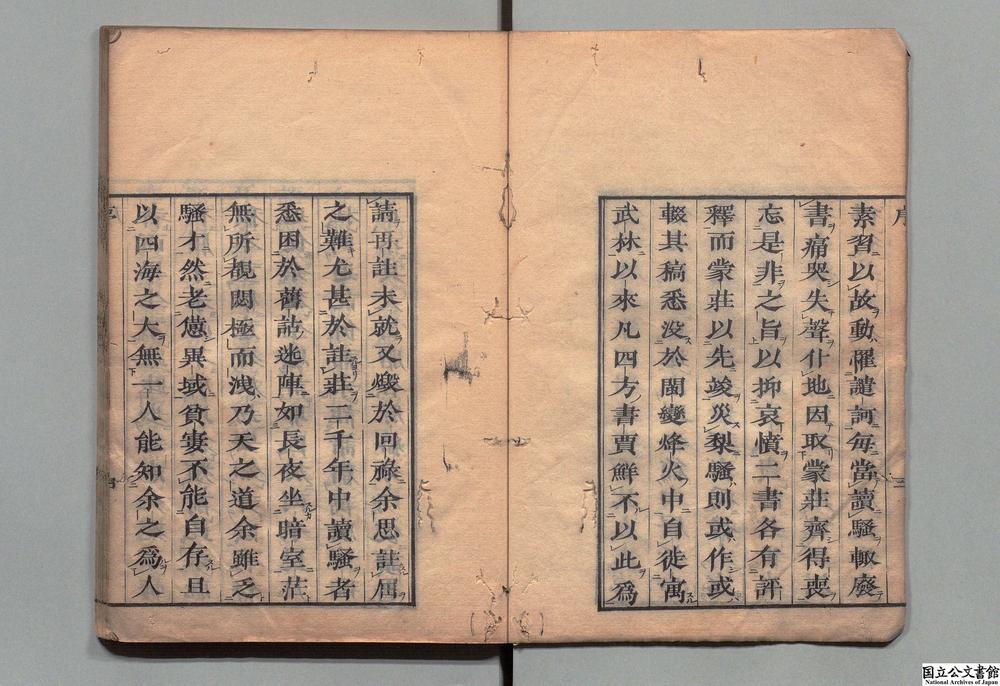 序
素習以故動罹譴訶每當讀騷輒廢
書痛哭失聲仆地因取蒙莊齊得喪
忘是非之旨以抑哀憤二書各有評
釋而蒙莊以先竣災梨騷則或作或
輟其稿悉沒於閩變烽火中自徙寓
武林以來凡四方書賈鮮不以此爲
請再註未就又燬於回祿余思註屈
之難尤甚於註莊二千年中讀騷者
悉困於舊詁迷陣如長夜坐暗室茫
無所覩閟極而洩乃天之道余雖乏
騷才然老憊異域貧窭不能自存且
以四海之大無一人能知余之爲人
国立公文書館
National Archives of Japan